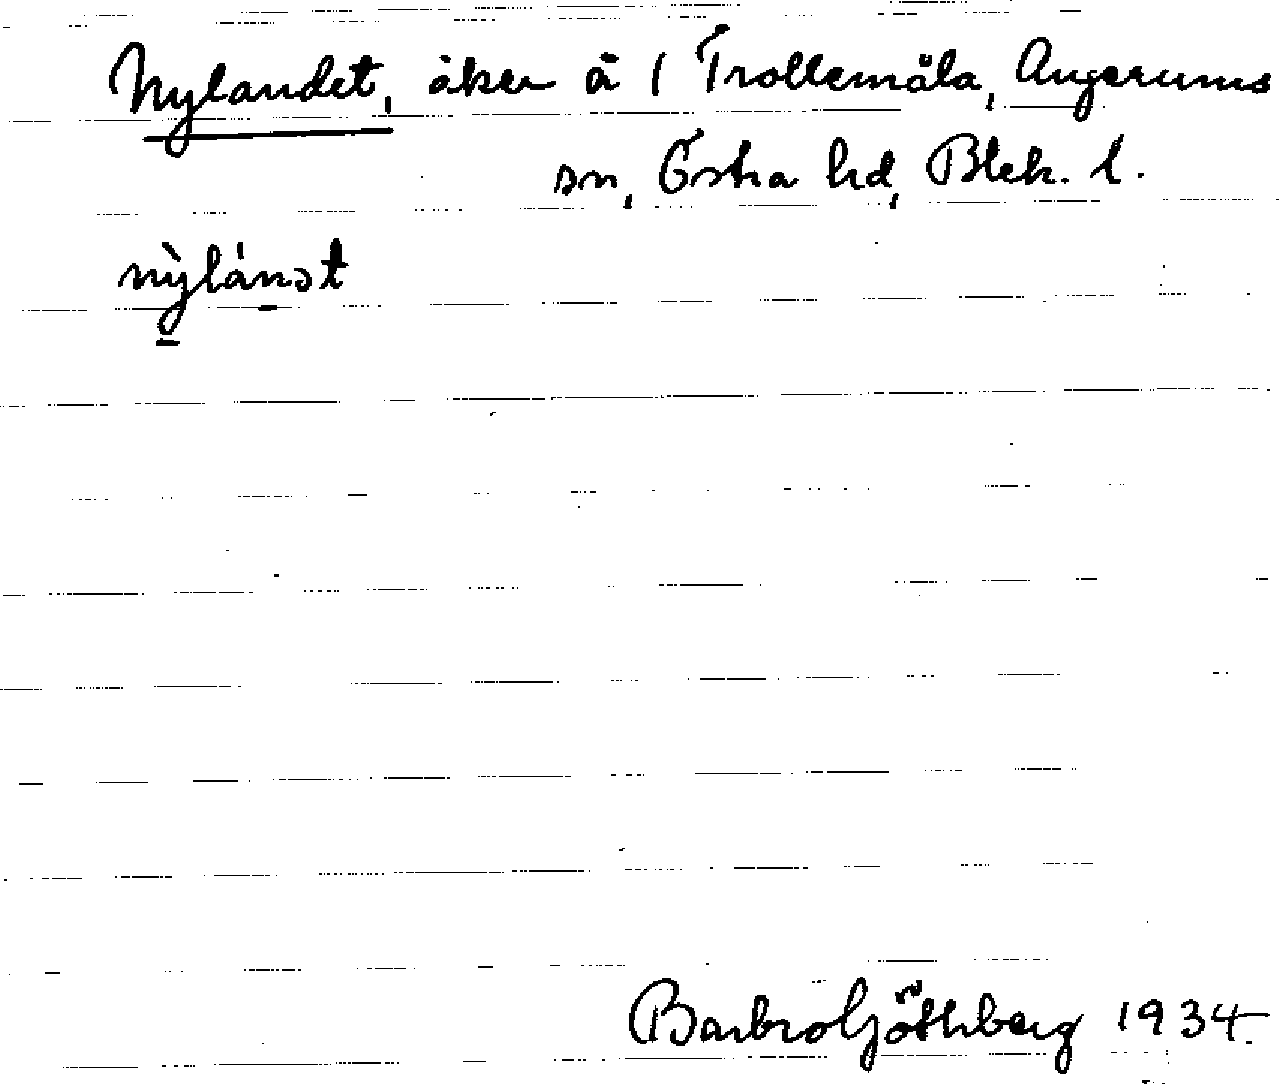 Nylandet, åker å 1 Trollemåla, Augerums
sn, Östra hd, Blek. l.
nỳlánət
Barbro Göthberg 1934.